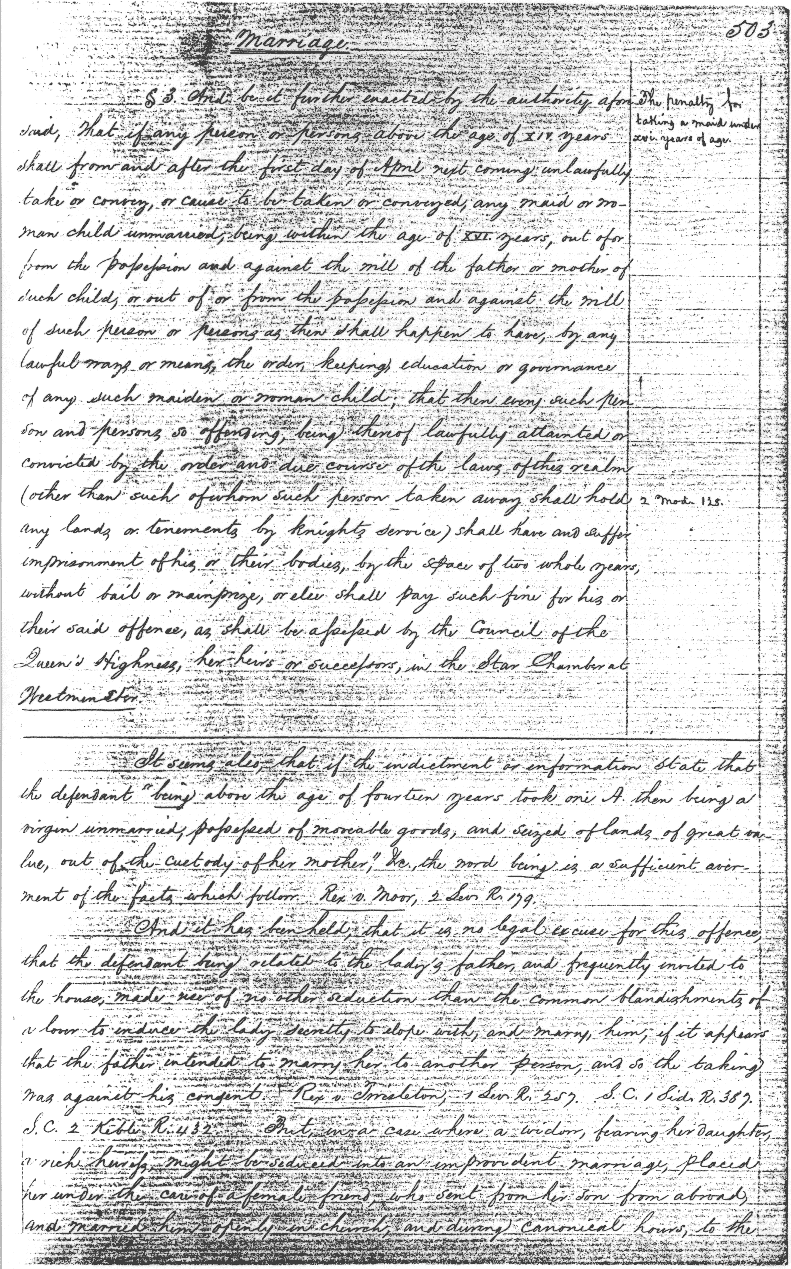 503
Marriage.
§ 3. And be it further enacted by the authority afore-
said, That if any person or persons above the age of XIV. years
shall from and after the first day of April next coming unlawfully
take or convey, or cause to be taken or conveyed, any maid or wo-
man child unmarried, being within the age of XVI. years, out of or
from the possession and against the will of the father or mother of
such child, or out of or from the possession and against the will
of such person or persons as then shall happen to have, by any
lawful ways or means, the order, keeping, education or governance
of any such maiden or woman child; that then every such per-
son and persons so offending, being thereof lawfully attainted or
convicted by the order and due course of the laws of this realm
(other than such of whom such person taken away shall hold
any lands or tenements by knights service) shall have and suffer
imprisonment of his or their bodies, by the space of two whole years,
without bail or mainprize, or else shall pay such fine for his or
their said offence, as shall be assessed by the Council of the
Queen's Highness, her heirs or successors, in the Star Chamber at
Westminster.
The penalty for
taking a maid under
xvi. years of age.
2 Mod. 128.
It seems also, that if the indictment or information state that
the defendant "being above the age of fourteen years took one A. then being a
virgin unmarried, possessed of moveable goods, and seized of lands of great va-
lue, out of the custody of her mother," &c., the word being is a sufficient aver-
ment of the facts which follow. Rex v. Moor, 2 Lev. R. 179.
And it has been held that it is no legal excuse for this offence,
that the defendant being related to the lady's father, and frequently invited to
the house, made use of no other seduction than the common blandishments of
a lover to induce the lady secretly to elope with, and marry, him; if it appears
that the father intended to marry her to another person, and so the taking
was against his consent. Rex v. Twisleton, 1 Lev. R. 257. S.C. 1 Sid. R. 387.
S.C. 2 Keble R. 432. But, in a case where a widow, fearing her daughter,
a rich heiress, might be seduced into an improvident marriage, placed
her under the care of a female friend, who sent from her son from abroad,
and married him openly in church, and during canonical hours, to the